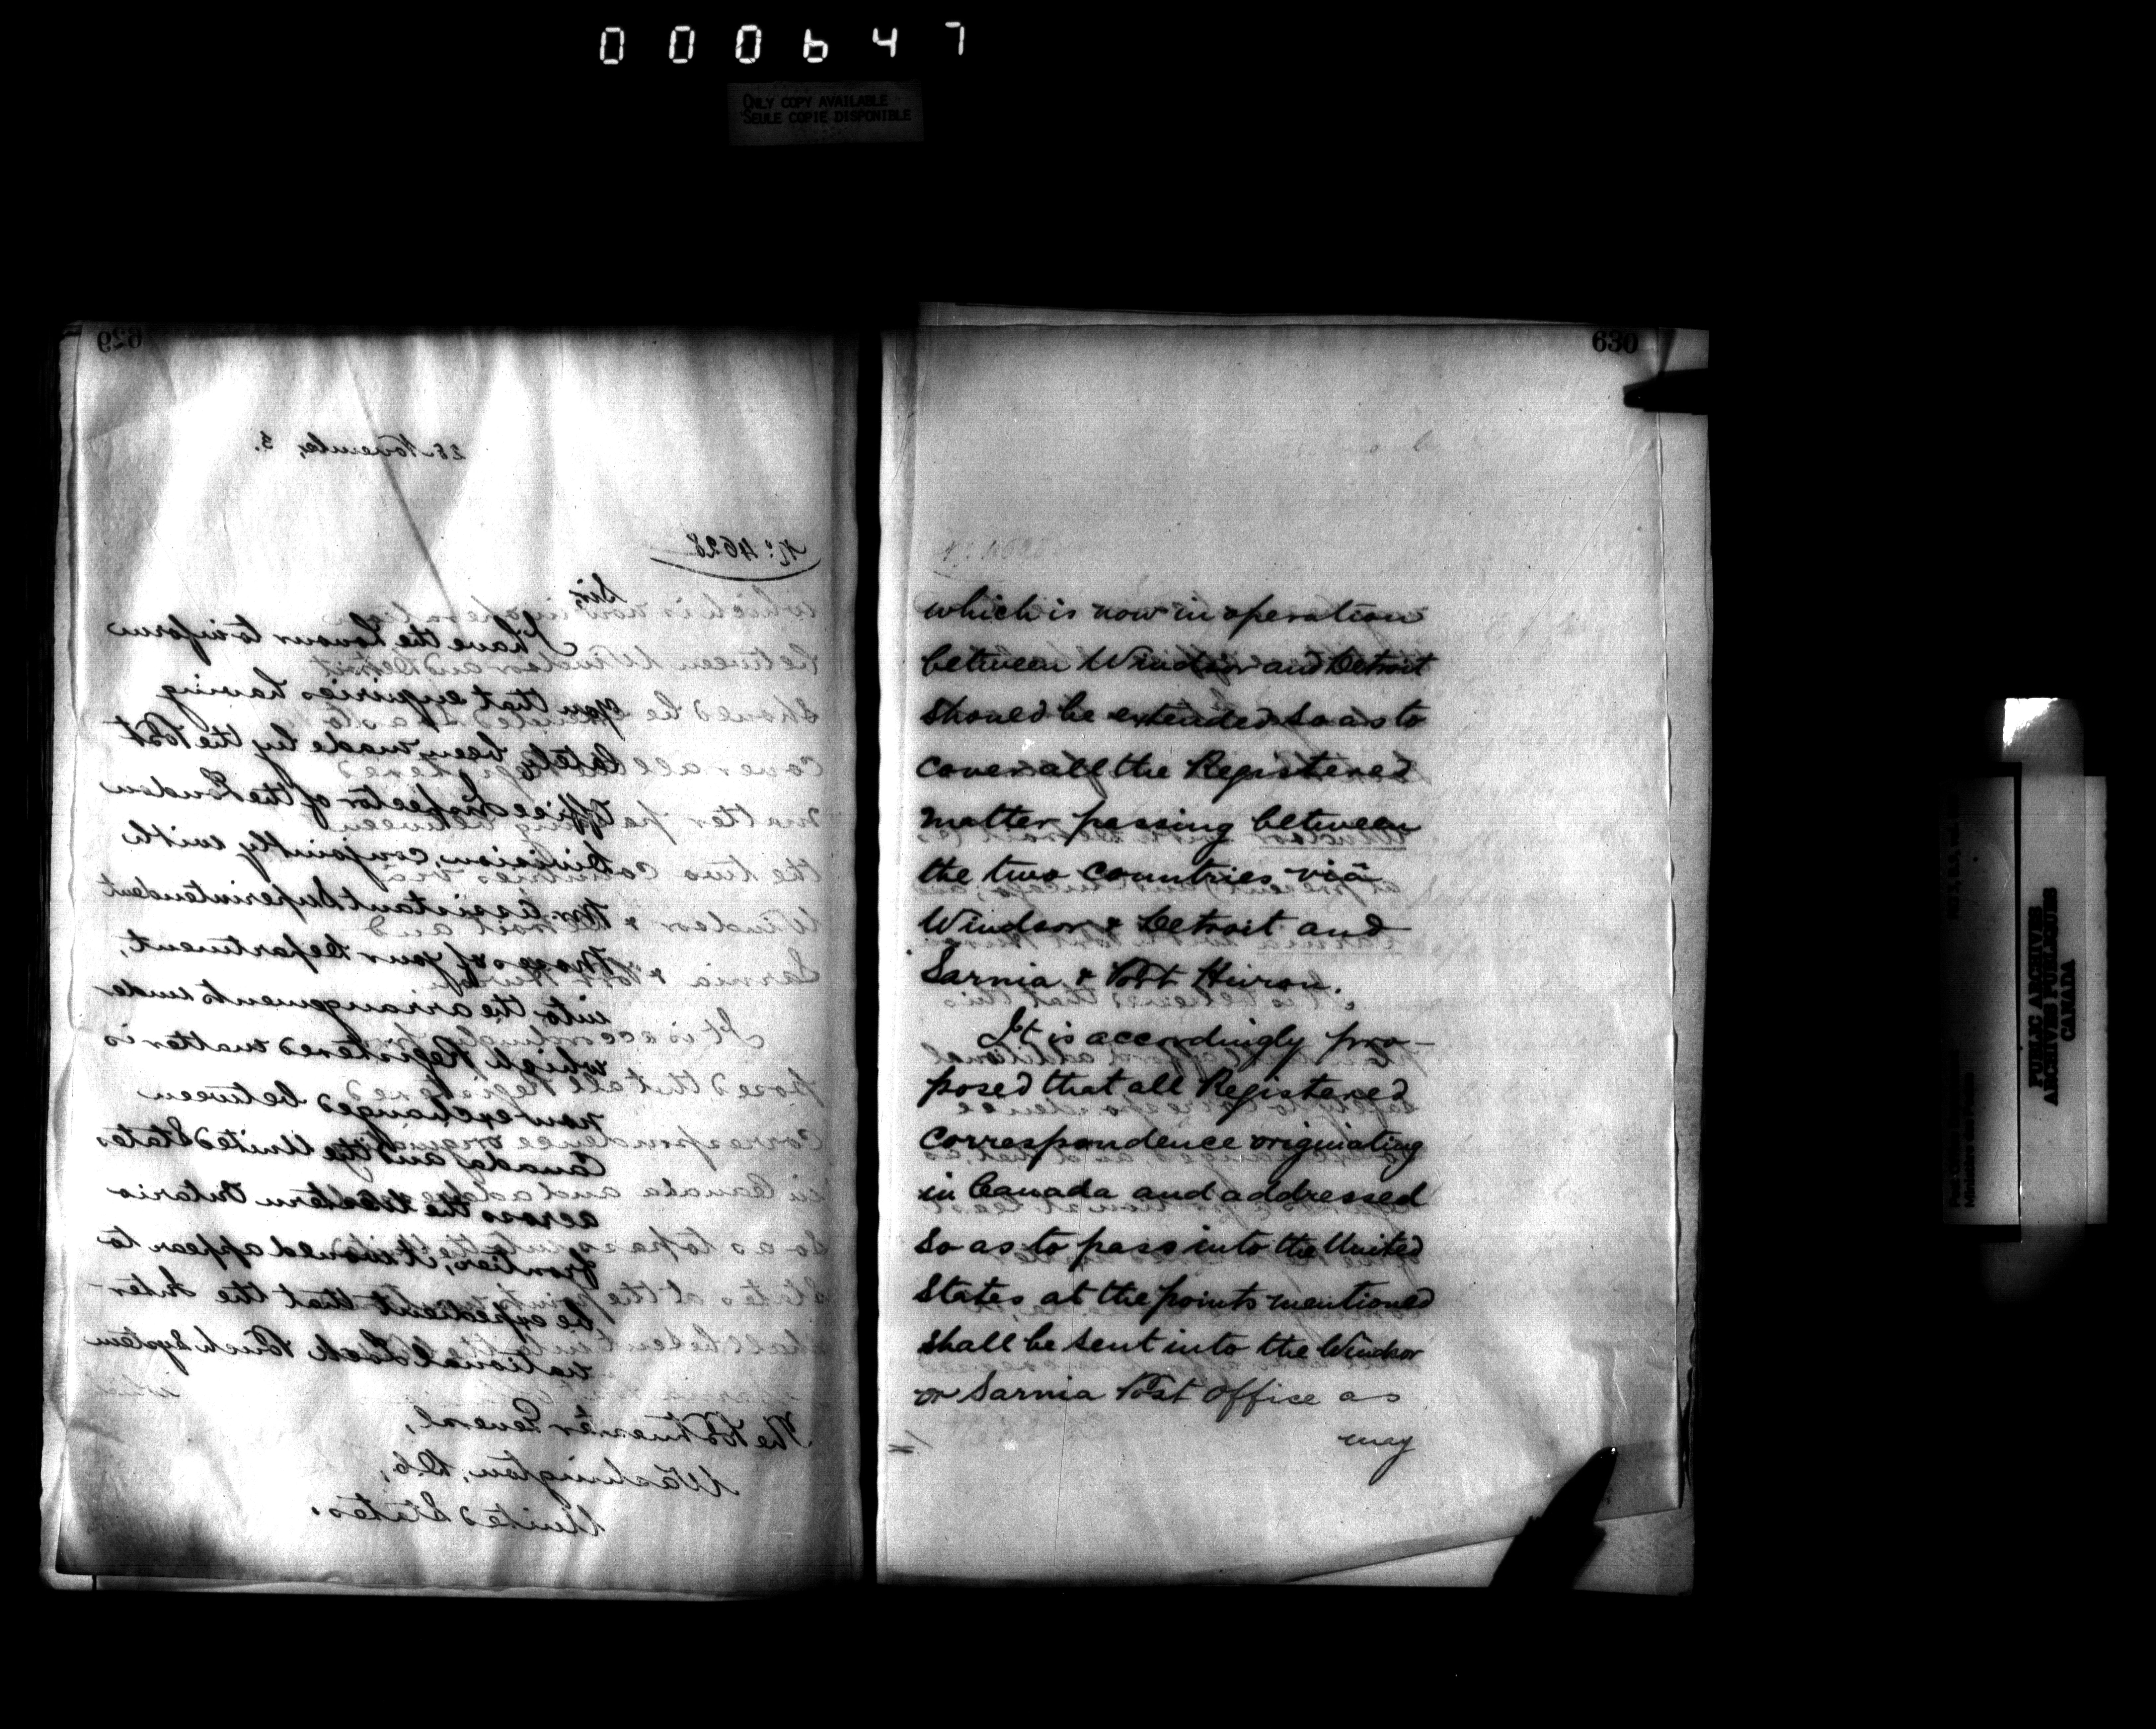 000647
ONLY COPY AVAILABLE
SEULE COPIE DISPONIBLE
629
28 November, 3.
No. 4628
Sir,
I have the honour to inform
you that enquiries having
lately been made by the Post
Office Inspector of the London
Division, conjointly with
the Assistant Superintendent
of your Department,
into the arrangements under
which Registered matter is
now exchanged between
Canada and the United States
across the Western Ontario
frontier, it would appear to
be expedient that the Inter-
national Lock Pouch System
which
The Postmaster General,
Washington, D.C.,
United States.
630
which is now in operation
between Windsor and Detroit
should be extended so as to
cover all the Registered
matter passing between
the two countries viâ
Windsor & Detroit and
Sarnia & Port Huron.
It is accordingly pro-
posed that all Registered
correspondence originating
in Canada and addressed
so as to pass into the United
States at the points mentioned
shall be sent into the Windsor
or Sarnia Post Office as
may
PUBLIC ARCHIVES
ARCHIVES PUBLIQUES
CANADA